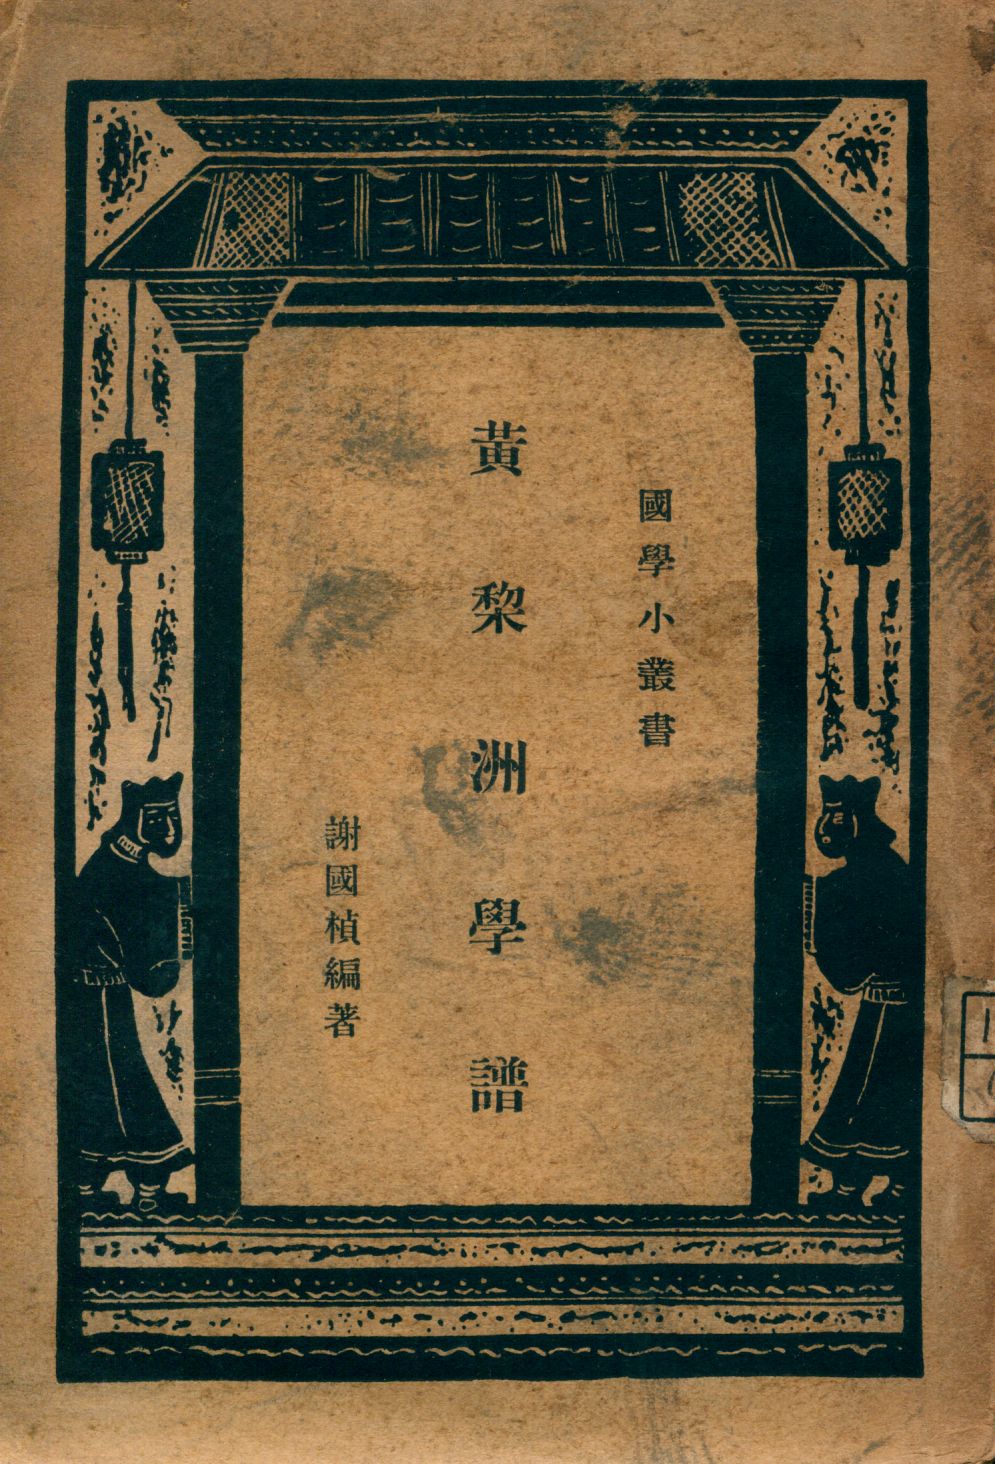 國學小叢書
黃黎洲學譜
謝國楨編著